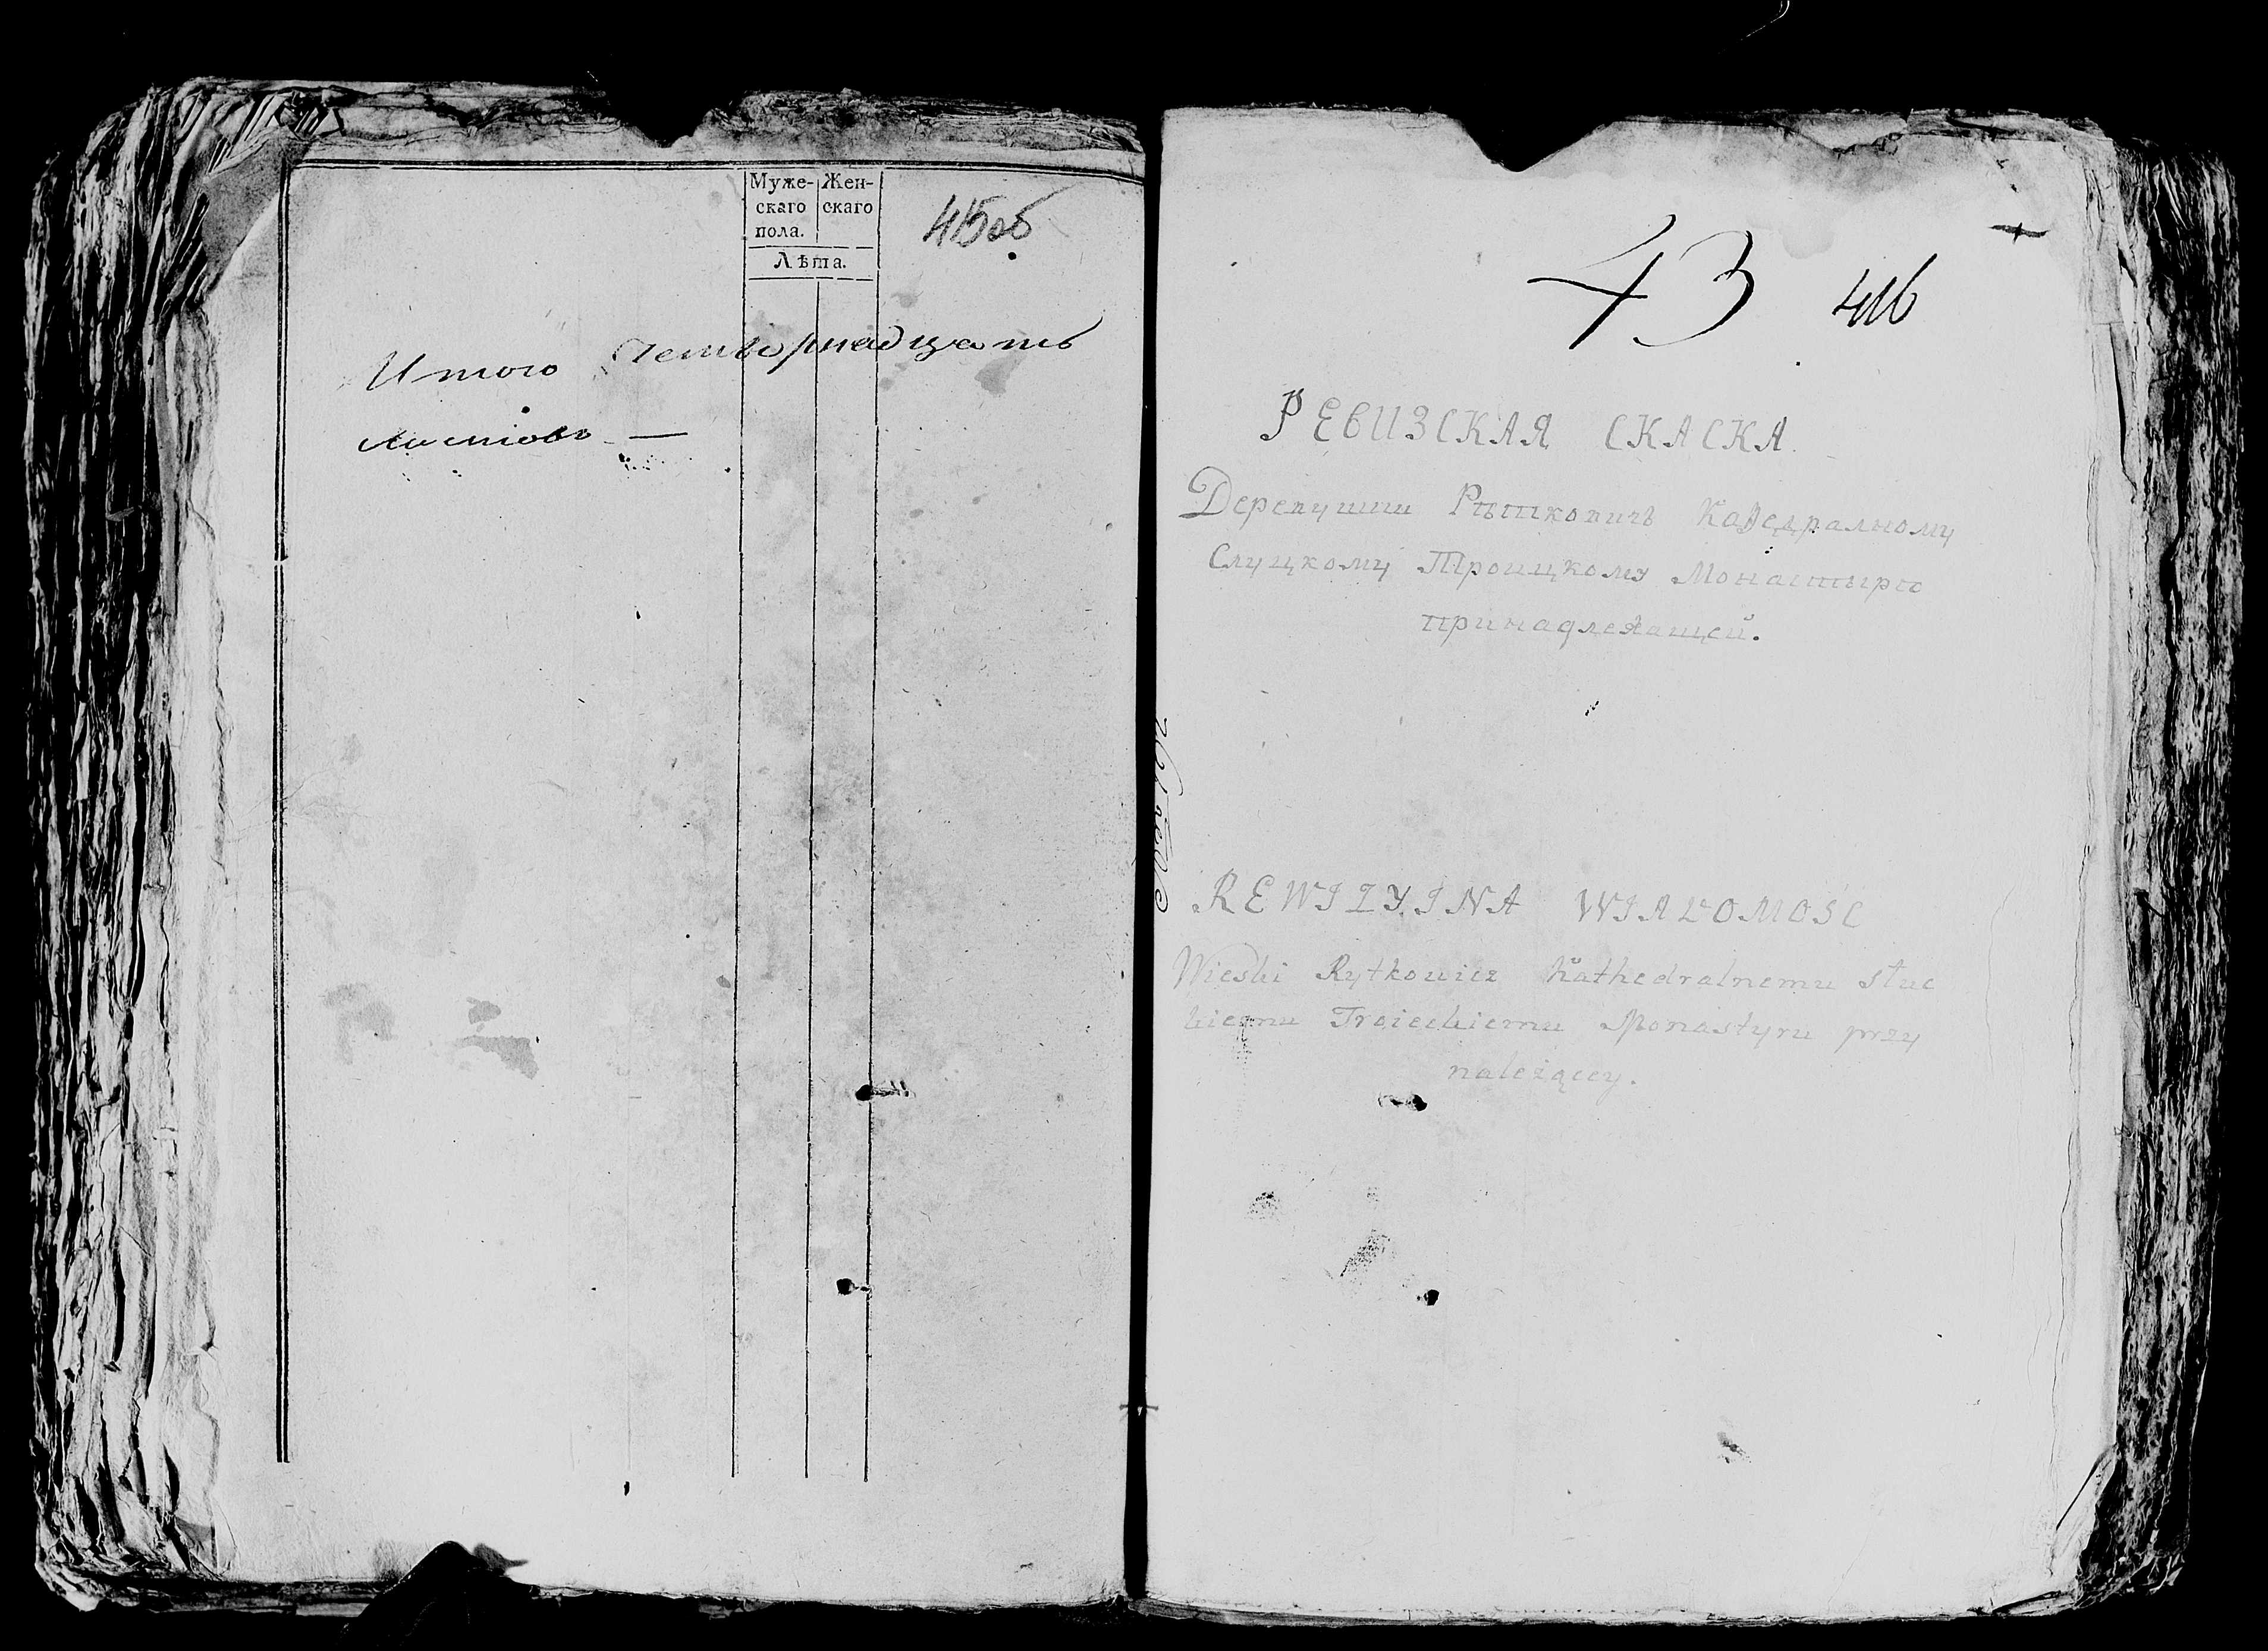 Муже- Жен-
скаго скаго
пола.
Лѣта.
415об
Итого Четырнадцать
листовъ —
43 416
РЕВИЗСКАЯ СКАСКА.
Деревушки Рытковичъ Каѳедралному
Слуцкому Троицкому Монастырю
принадлежащей.
REWIZYINA WIADOMOSC
Wioski Rytkowicz Kathedralnemu Słuc
kiemu Troieckiemu Monastyru przy
należącey.